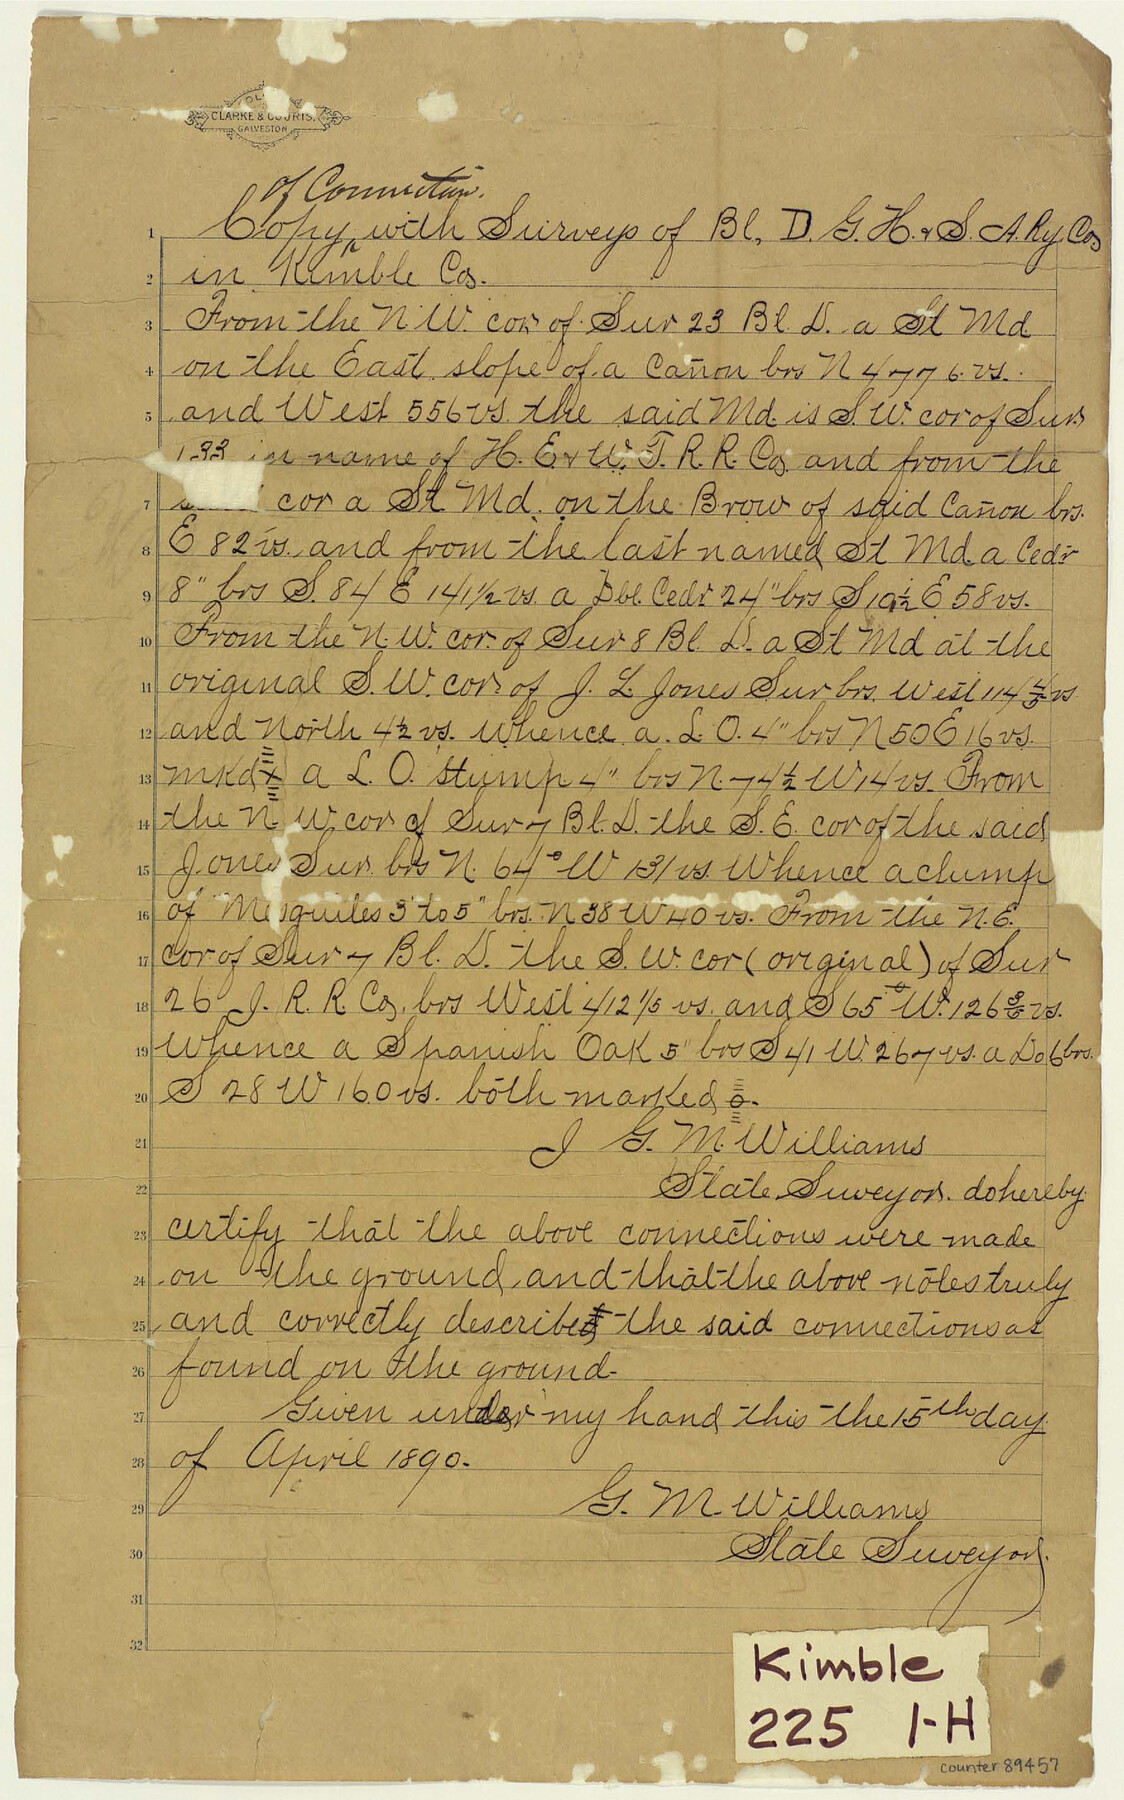 CLARKE & COURTS.
GALVESTON
of Connection.
1 Copy ^ with Surveys of Bl, D. G. H. & S. A. Ry Co,
2 in Kimble Co.
3 From the N W. cor of Sur 23 Bl. D. a St Md
4 on the East slope of a Cañon brs N 4776 vs.
5 and West 556 vs. the said Md. is S. W. cor of Sur.
133 in name of H. E & W. T. R. R. Co, and from the
7 cor a St Md. on the Brow of said Cañon brs.
8 E 82 vs. and from the last named St Md. a Cedr
9 8" brs S. 84 E 141½ vs. a Dbl. Cedr 24" brs S 19½ E 58 vs.
10 From the N. W. cor. of Sur 8 Bl. D. a St Md at the
11 original S. W. cor of J. L. Jones Sur brs. West 114 4/5 vs
12 and North 4½ vs. whence a. L. O. 4" brs N 50 E 16 vs.
13 mkd X a L. O. stump 4" brs N. 74½ W 14 vs. From
14 the N. W cor of Sur 7 Bl. D. the S. E. cor of the said
15 Jones Sur. brs N. 64° W 131 vs. Whence a clump
16 of Mesquites 3" to 5" brs. N 38 W 40 vs. From the N. E.
17 cor of Sur 7 Bl. D. the S. W. cor (original) of Sur
18 26 J. R. R. Co, brs West 412 1/5 vs. and S 65° W. 126 3/5 vs.
19 whence a Spanish Oak 5" brs S 41 W. 267 vs. a Do 6 brs.
20 S 28 W 160 vs. both marked
21 I G. M. Williams
22 State Suveyor. do hereby
23 certify that the above connections were made
24 on the ground, and that the above notes truly
25 and correctly describes the said connections as
26 found on the ground.
27 Given under my hand this the 15th day
28 of April 1890.
29 G. M. Williams
30 State Suveyor.
31
32
Kimble
225 1-H
counter 89457